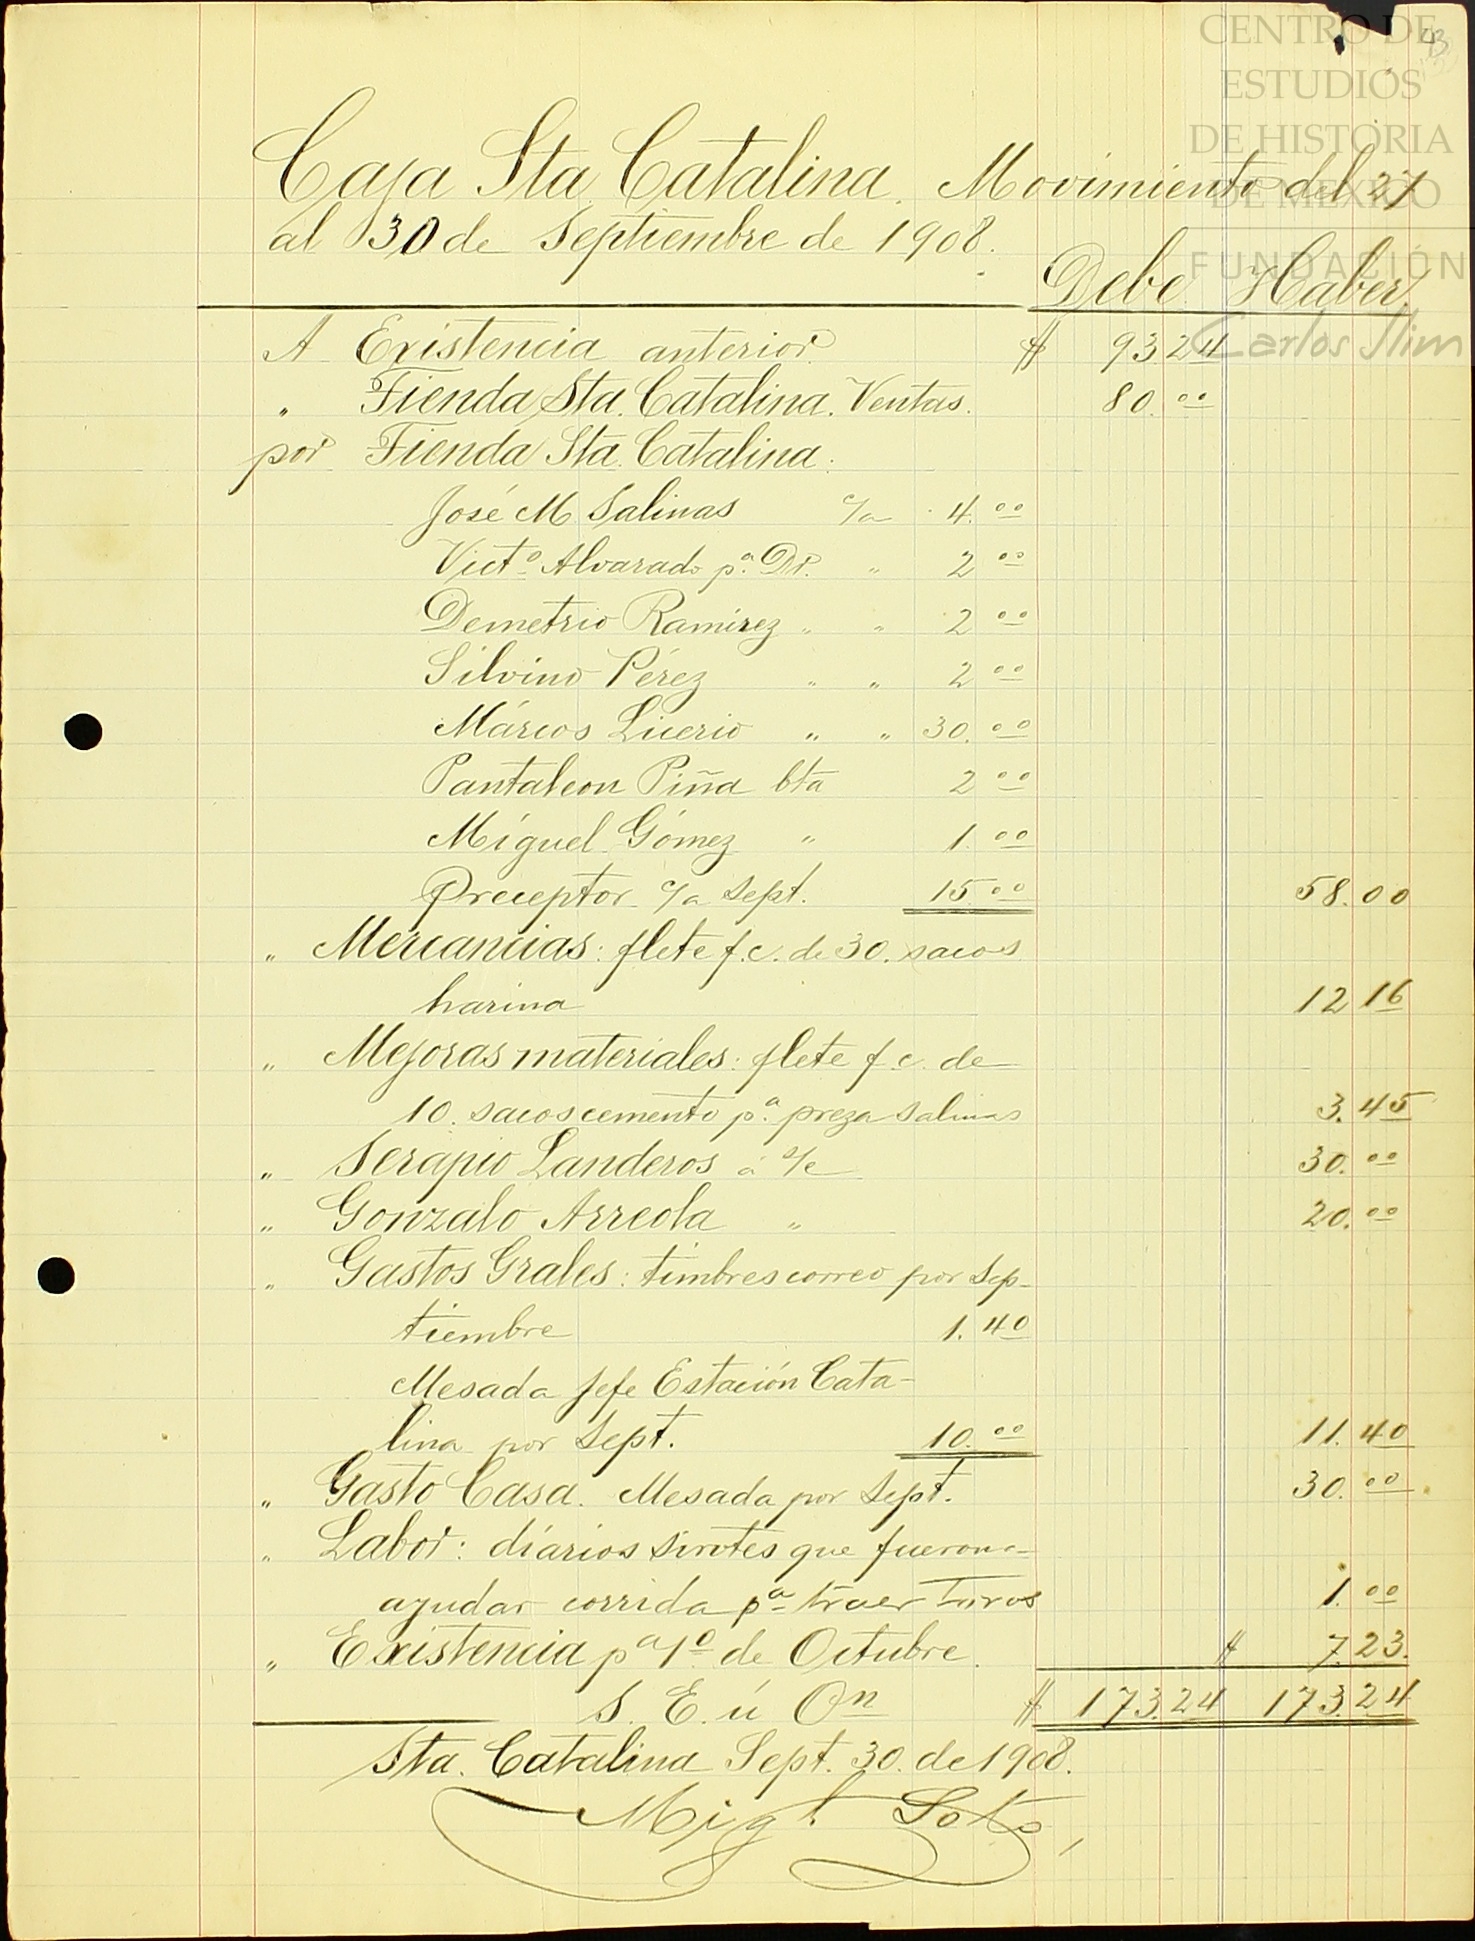 CENTRO DE
ESTUDIOS
DE HISTORIA
DE MEXICO
FUNDACIÓN
Carlos Slim
Caja Sta. Catalina. Movimiento del 27
al 30 de Septiembre de 1908.
Debe Haber
A Existencia anterior $ 93.24
" Tienda Sta. Catalina. Ventas. 80.00
por Tienda Sta. Catalina.
José M Salinas c/a 4.00
Victo Alvarado pa. Dr. " 2 00
Demetrio Ramírez " " 2 00
Silvino Pérez " " 2 00
Márcos Licerio " " 30.00
Pantaleon Piña bta 2 00
Miguel Gómez " 1.00
Preceptor c/a Sept. 15.00 58.00
" Mercancias: flete f.c. de 30. sacos
harina 12 16
" Mejoras materiales: flete f.c. de
10. sacos cemento pa. preza Salinas 3.45
" Serapio Landeros á c/c 30.00
" Gonzalo Arreola " 20.00
" Gastos Grales: timbres correo por Sep-
tiembre 1.40
Mesada Jefe Estación Cata-
lina por Sept. 10.00 11.40
" Gasto Casa. Mesada por Sept. 30.00
" Labor: diarios que fueron a
ayudar corrida pa traer toros 1.00
" Existencia pa 1o de Octubre. $ 7.23.
S. E. ú On $ 173.24 173.24
Sta. Catalina Sept. 30. de 1908.
Migl. Soto